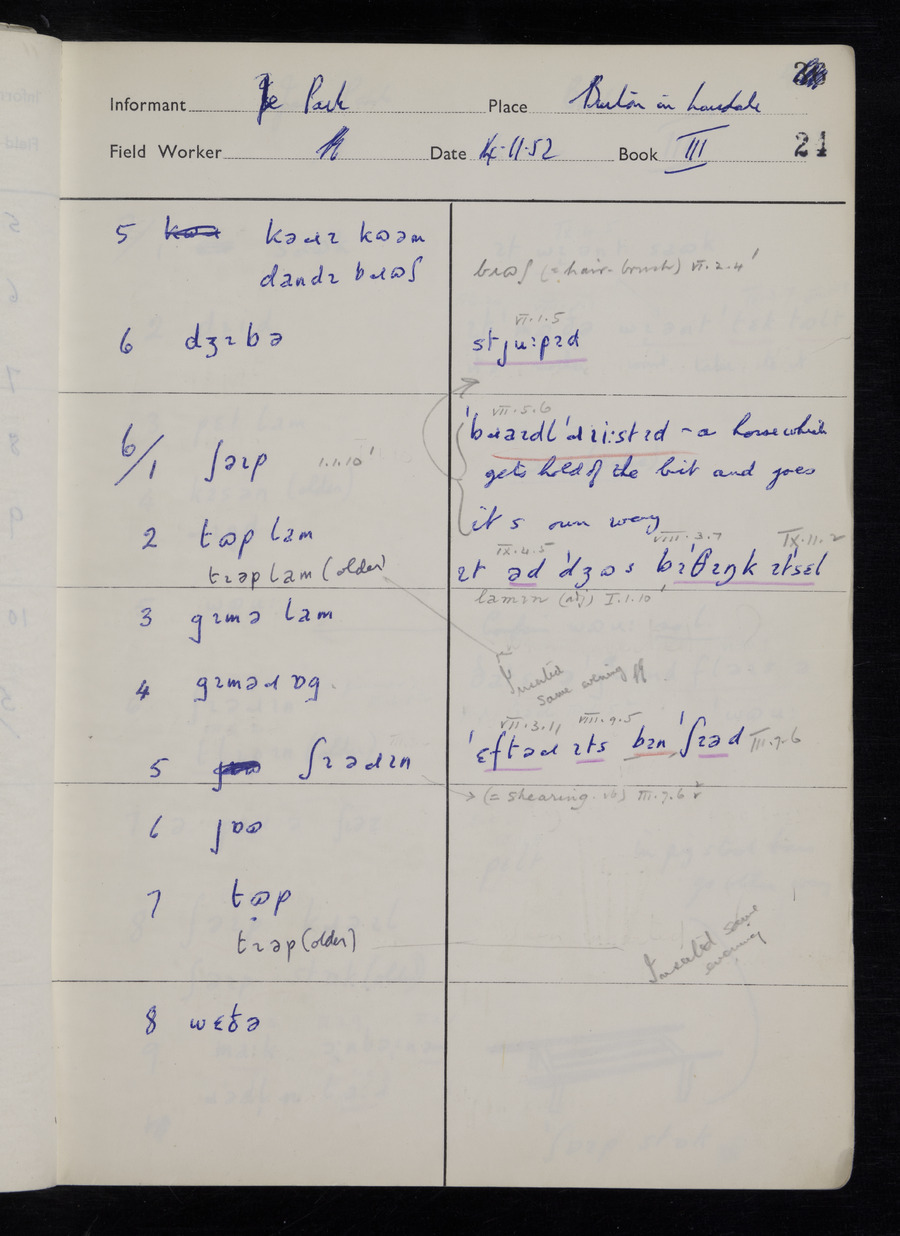 Informant Joe Park Place Burton in Lonsdale
Field Worker Date 14-11-52 Book III 21
5 kəɹɪ kɷəm
dandɪ bɹɷʃ
bɹɷʃ (= hair-brush) VI.2.4'
6 dʒɪbə
VI.1.5
stjuːpɪd
6/1 ʃəɪp I.1.10'
VII.5.6
'bɹaɪdl'ɹiːstɪd - a horse which
gets hold of the bit and goes
it s own way
2 tɷp lam
tɪəp lam (older)
IX.4.5 VIII.3.7 IX.11.2
ɪt əd 'dʒɷs bɪ'θɪŋk ɪt'sɛl
3 gɪmə lam
lamɪn (adj) I.1.10'
4 gɪməɹ ɒg
Inserted
same evening
5 ʃɪəɹɪn
VII.3.11 VIII.9.5
'ɛftəɹ ɪts bɪn 'ʃɪəd III.7.6
→ (= shearing. vb) III.7.6
6 jɒɷ
7 tɷp
tɪəp (older)
Inserted same
evening
8 wɛðə